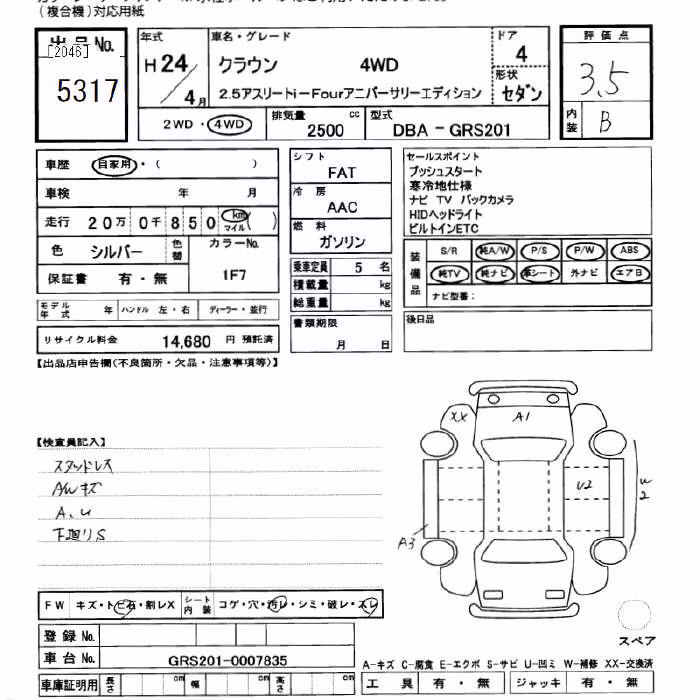 (複合機)対応用紙
出品No.
[2046]
5317
年式
H24/4月
車名・グレード
クラウン 4WD
2.5アスリートi－Fourアニバーサリーエディション
ドア
4
形状
セダン
評価点
3.5
内装
B
2WD・4WD
排気量
2500 cc
型式
DBA－GRS201
車歴 自家用・( )
車検 年 月
走行 20万 0千 850 km マイル ( )
色 シルバー 色替
カラーNo.
1F7
保証書 有・無
モデル年式 年 ハンドル 左・右 ディーラー・並行
リサイクル料金 14,680 円 預託済
シフト
FAT
冷房
AAC
燃料
ガソリン
乗車定員 5 名
積載量 kg
総重量 kg
書類期限
月 日
セールスポイント
プッシュスタート
寒冷地仕様
ナビ TV バックカメラ
HIDヘッドライト
ビルトインETC
装備品
S/R 純A/W P/S P/W ABS
純TV 純ナビ 革シート 外ナビ エアB
ナビ型番:
後日品
【出品店申告欄(不良箇所・欠品・注意事項等)】
【検査員記入】
スタッドレス
AWキズ
A、U
下廻りS
XX
A1
U2
W2
A3
スペア
FW キズ・トビ石・割レX シート内装 コゲ・穴・汚レ・シミ・破レ・スレ
登録No.
車台No. GRS201-0007835
車庫証明用 長さ cm 幅 cm 高さ cm
A-キズ C-腐食 E-エクボ S-サビ U-凹ミ W-補修 XX-交換済
工具 有・無 ジャッキ 有・無